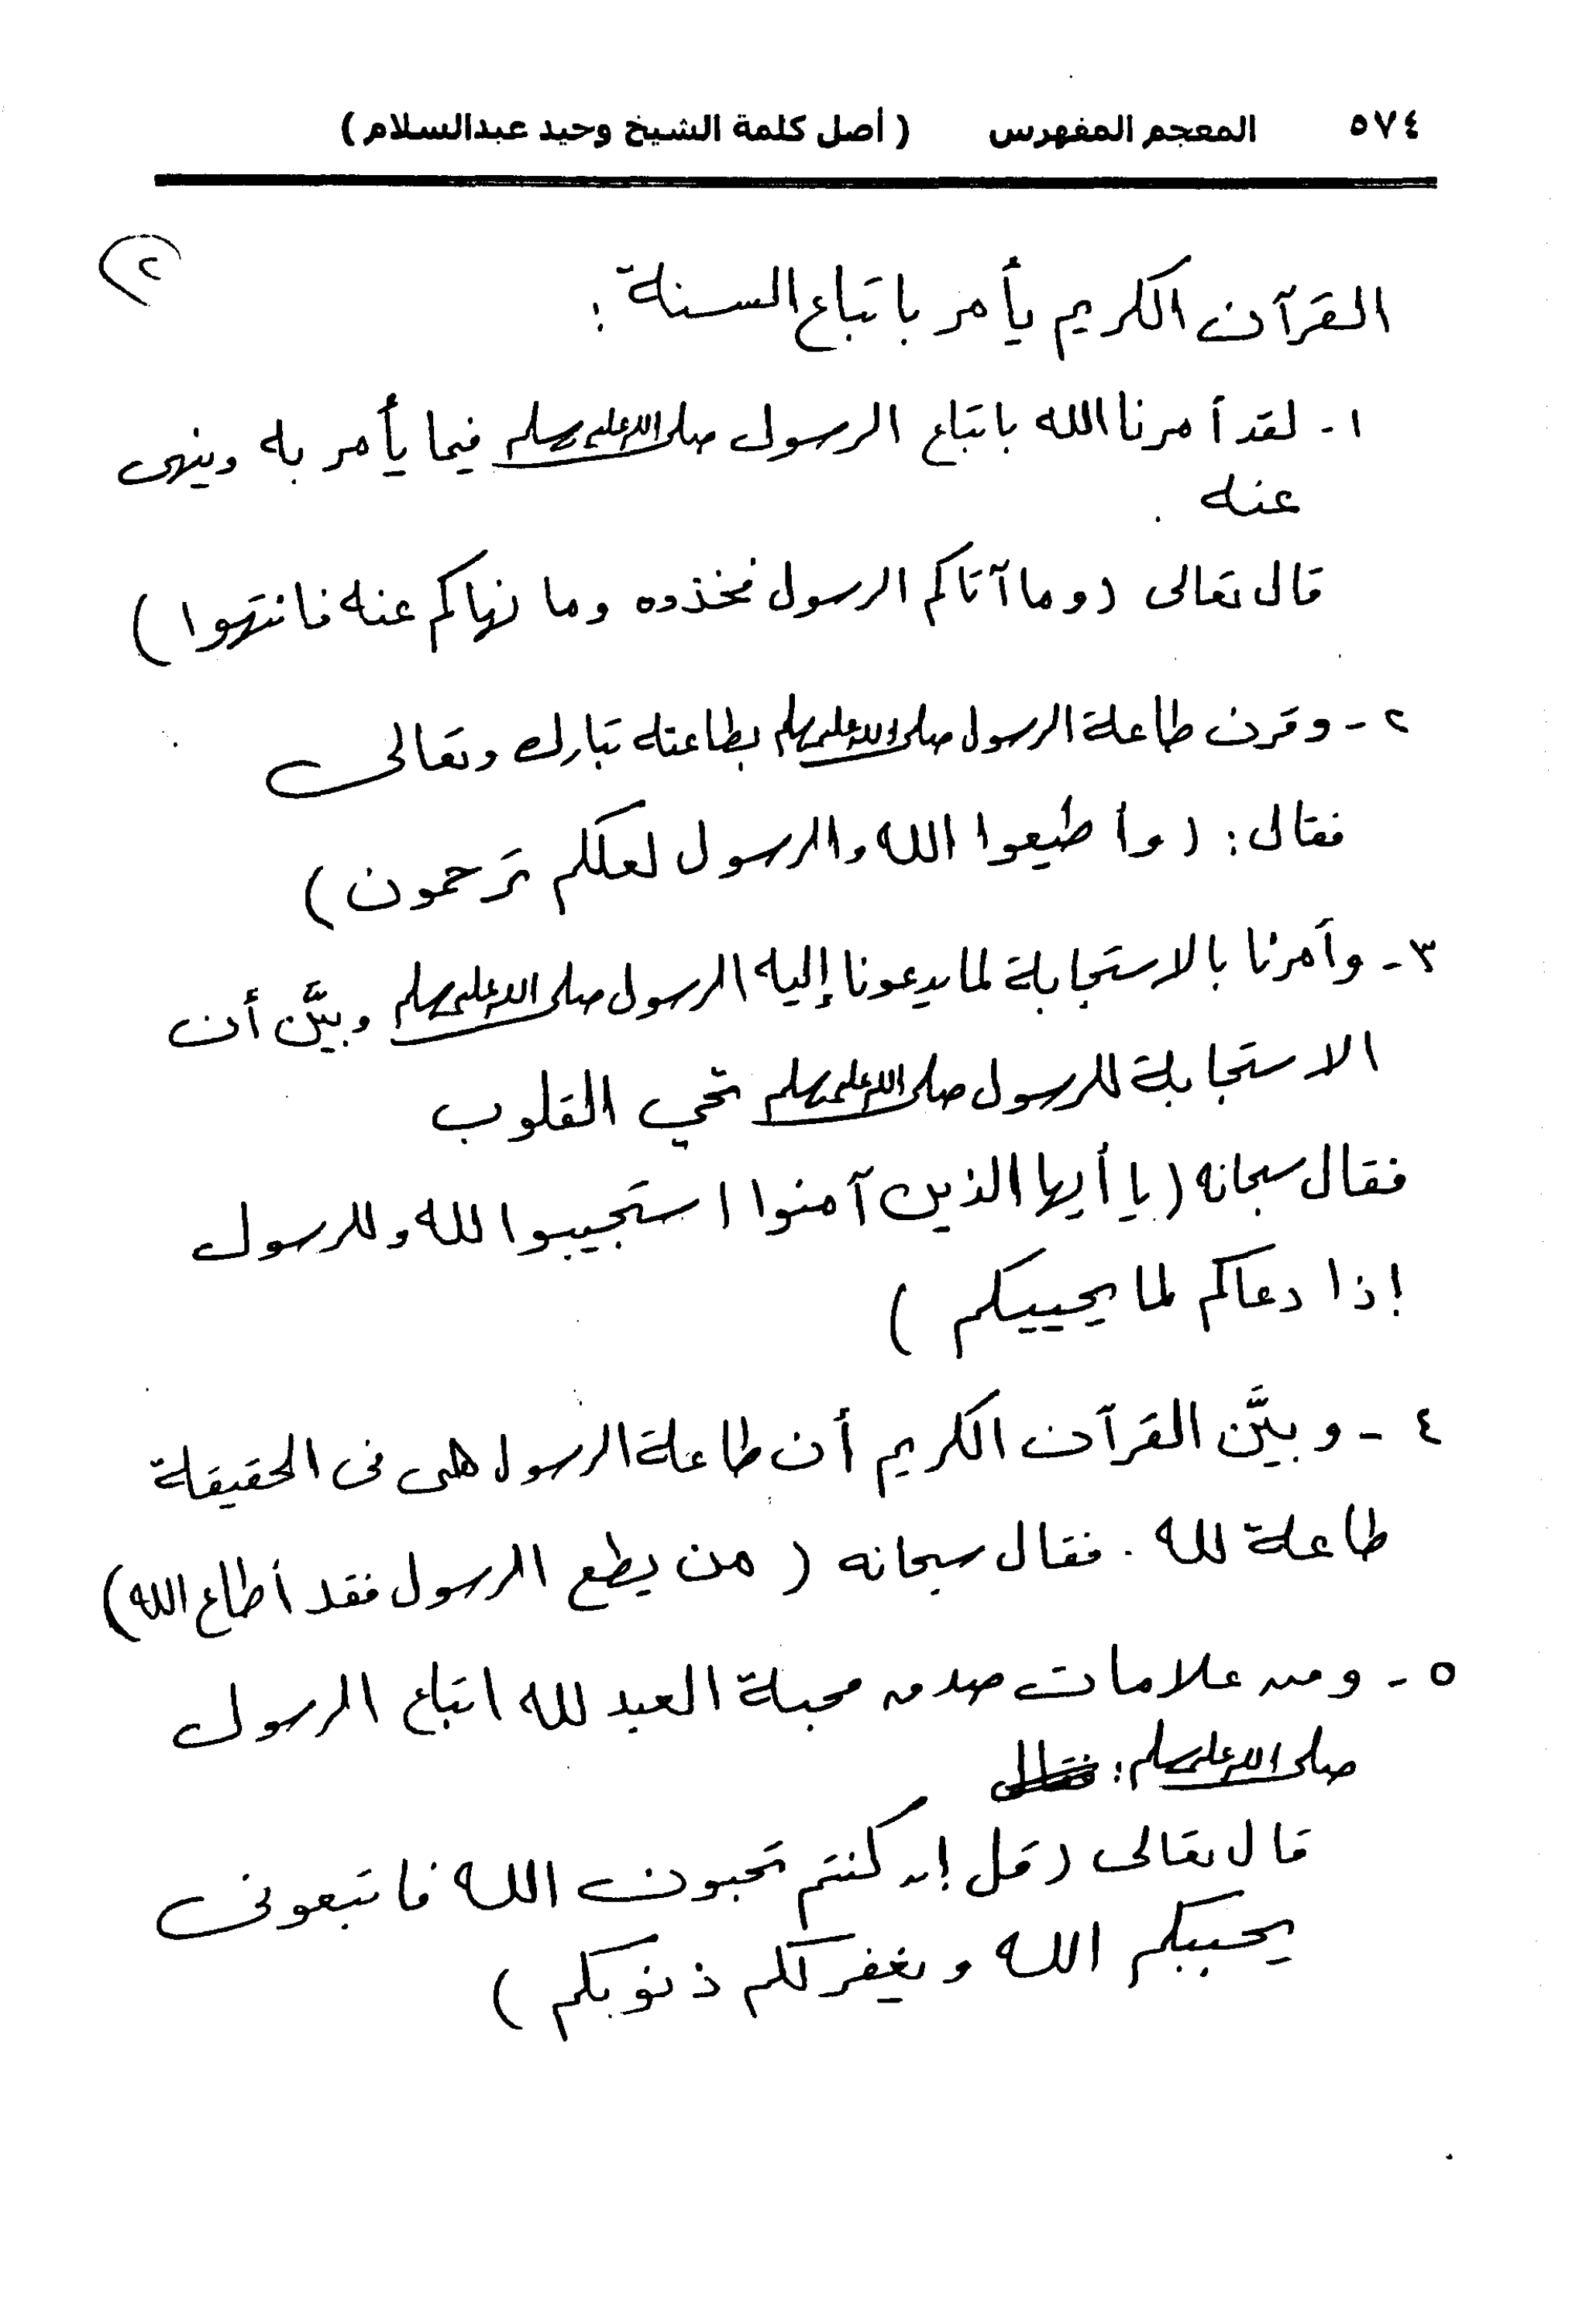 ٥٧٤ المعجم المفهرس ( أصل كلمة الشيخ وحيد عبدالسلام )
٢
القرآن الكريم يأمر باتباع السنة :
١- لقد أمرنا الله باتباع الرسول صلى الله عليه وسلم فيما يأمر به وينهى
عنه .
قال تعالى (وما آتاكم الرسول فخذوه وما نهاكم عنه فانتهوا )
٢- وقرن طاعة الرسول صلى الله عليه وسلم بطاعته تبارك وتعالى
فقال : ( وأطيعوا الله والرسول لعلكم ترحمون )
٣- وأمرنا بالاستجابة لما يدعونا إليه الرسول صلى الله عليه وسلم وبيَّن أن
الاستجابة للرسول صلى الله عليه وسلم تحي القلوب
فقال سبحانه ( يا أيها الذين آمنوا استجيبوا لله وللرسول
إذا دعاكم لما يحييكم )
٤- وبيَّن القرآن الكريم أن طاعة الرسول هى فى الحقيقة
طاعة لله . فقال سبحانه ( من يطع الرسول فقد أطاع الله)
٥- ومن علامات صدق محبة العبد لله اتباع الرسول
صلى الله عليه وسلم : فقال
قال تعالى ( قل إن كنتم تحبون الله فاتبعونى
يحببكم الله ويغفر لكم ذنوبكم )